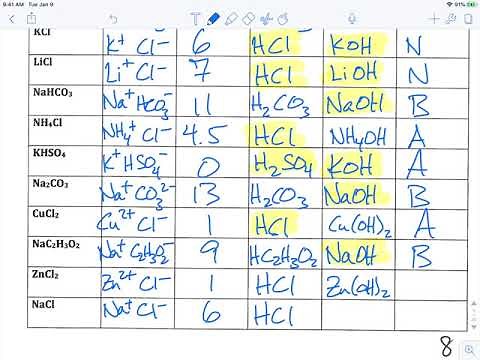 9:41 AM Tue Jan 9
91%
KCl K⁺ Cl⁻ 6 HCl KOH N
LiCl Li⁺ Cl⁻ 7 HCl LiOH N
NaHCO3 Na⁺ HCO₃⁻ 11 H₂CO₃ NaOH B
NH4Cl NH₄⁺ Cl⁻ 4.5 HCl NH₄OH A
KHSO4 K⁺ HSO₄⁻ 0 H₂SO₄ KOH A
Na2CO3 Na⁺ CO₃²⁻ 13 H₂CO₃ NaOH B
CuCl2 Cu²⁺ Cl⁻ 1 HCl Cu(OH)₂ A
NaC2H3O2 Na⁺ C₂H₃O₂⁻ 9 HC₂H₃O₂ NaOH B
ZnCl2 Zn²⁺ Cl⁻ 1 HCl Zn(OH)₂
NaCl Na⁺ Cl⁻ 6 HCl
8